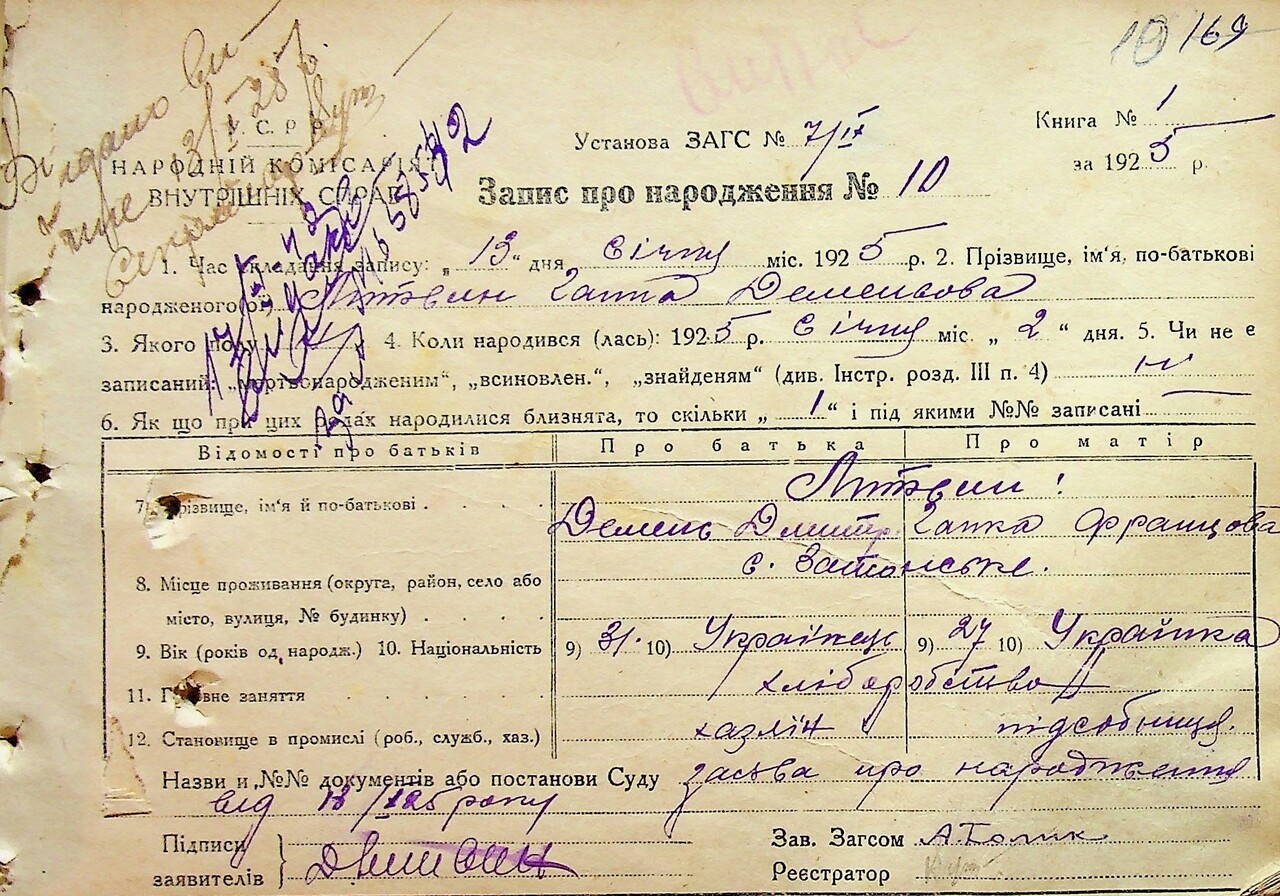 10 169
Видано
28 р.
У. С. Р. Р.
НАРОДНІЙ КОМІСАРІЯТ
ВНУТРІШНІХ СПРАВ
Установа ЗАГС № 7/IX
Книга № 1
за 1925 р.
Запис про народження № 10
1. Час складання запису: „ 13 “ дня Січня міс. 1925 р. 2. Прізвище, ім'я, по-батькові
народженого(ої) Литвин Ганна Деменьова
3. Якого полу 4. Коли народився (лась): 1925 р. Січня міс. „ 2 “ дня. 5. Чи не є
записаний: „мертвонародженим“, „всиновлен.“, „знайденям“ (див. Інстр. розд. III п. 4)
6. Як що при цих родах народилися близнята, то скільки „ 1 “ і під якими №№ записані
Відомості про батьків Про батька Про матір
7. Прізвище, ім'я й по-батькові Литвин
Демень Дмитр. Ганка Францова
8. Місце проживання (округа, район, село або с. Затонське.
місто, вулиця, № будинку)
9. Вік (років од народж.) 10. Національність 9) 31. 10) Українець 9) 27 10) Українка
11. Головне заняття хліборобство
12. Становище в промислі (роб., служб., хаз.) хазяїн підсобниця.
Назви и №№ документів або постанови Суду заява про народження
від 13/I 25 року
Підписи
заявителів ДЛитвин
Зав. Загсом
Реєстратор